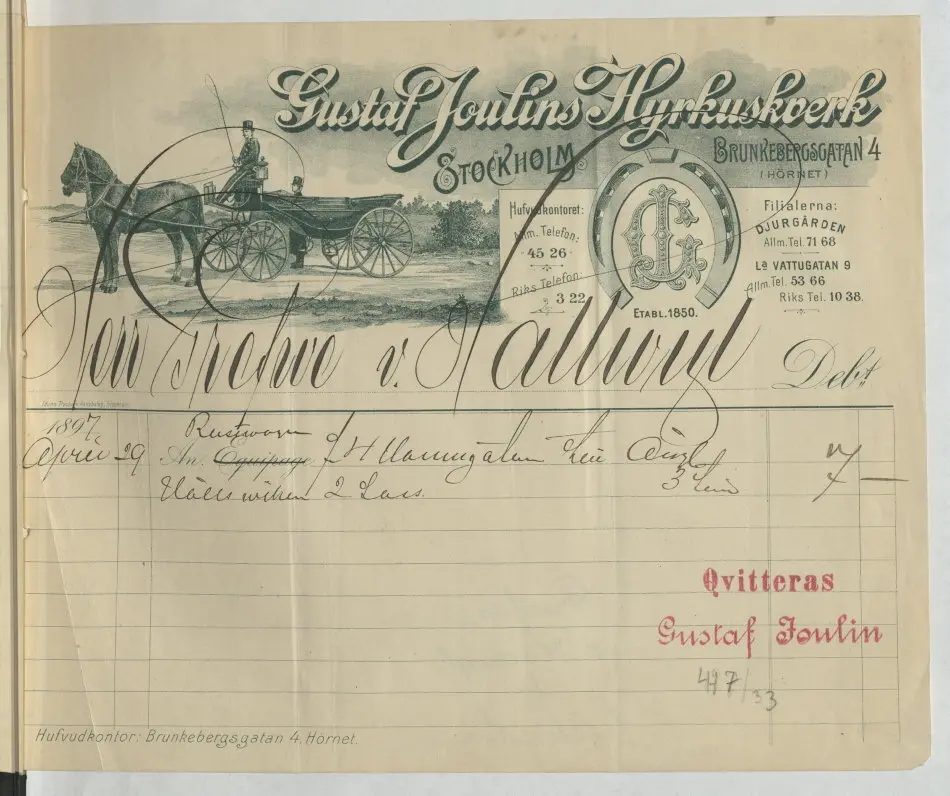 Gustaf Joulins Hyrkuskverk
STOCKHOLM
BRUNKEBERGSGATAN 4
(HÖRNET)
Hufvudkontoret:
Allm. Telefon:
45 26
Riks Telefon:
3 22
G J
ETABL. 1850.
Filialerna:
DJURGÅRDEN
Allm. Tel. 71 68
La VATTUGATAN 9
Allm. Tel. 53 66
Riks Tel. 10 38.
Herr v. Hallwyl Debt
1897
April 29 An. Equipage
2 Lass
Qvitteras
Gustaf Joulin
417/33
Hufvudkontor: Brunkebergsgatan 4. Hörnet.